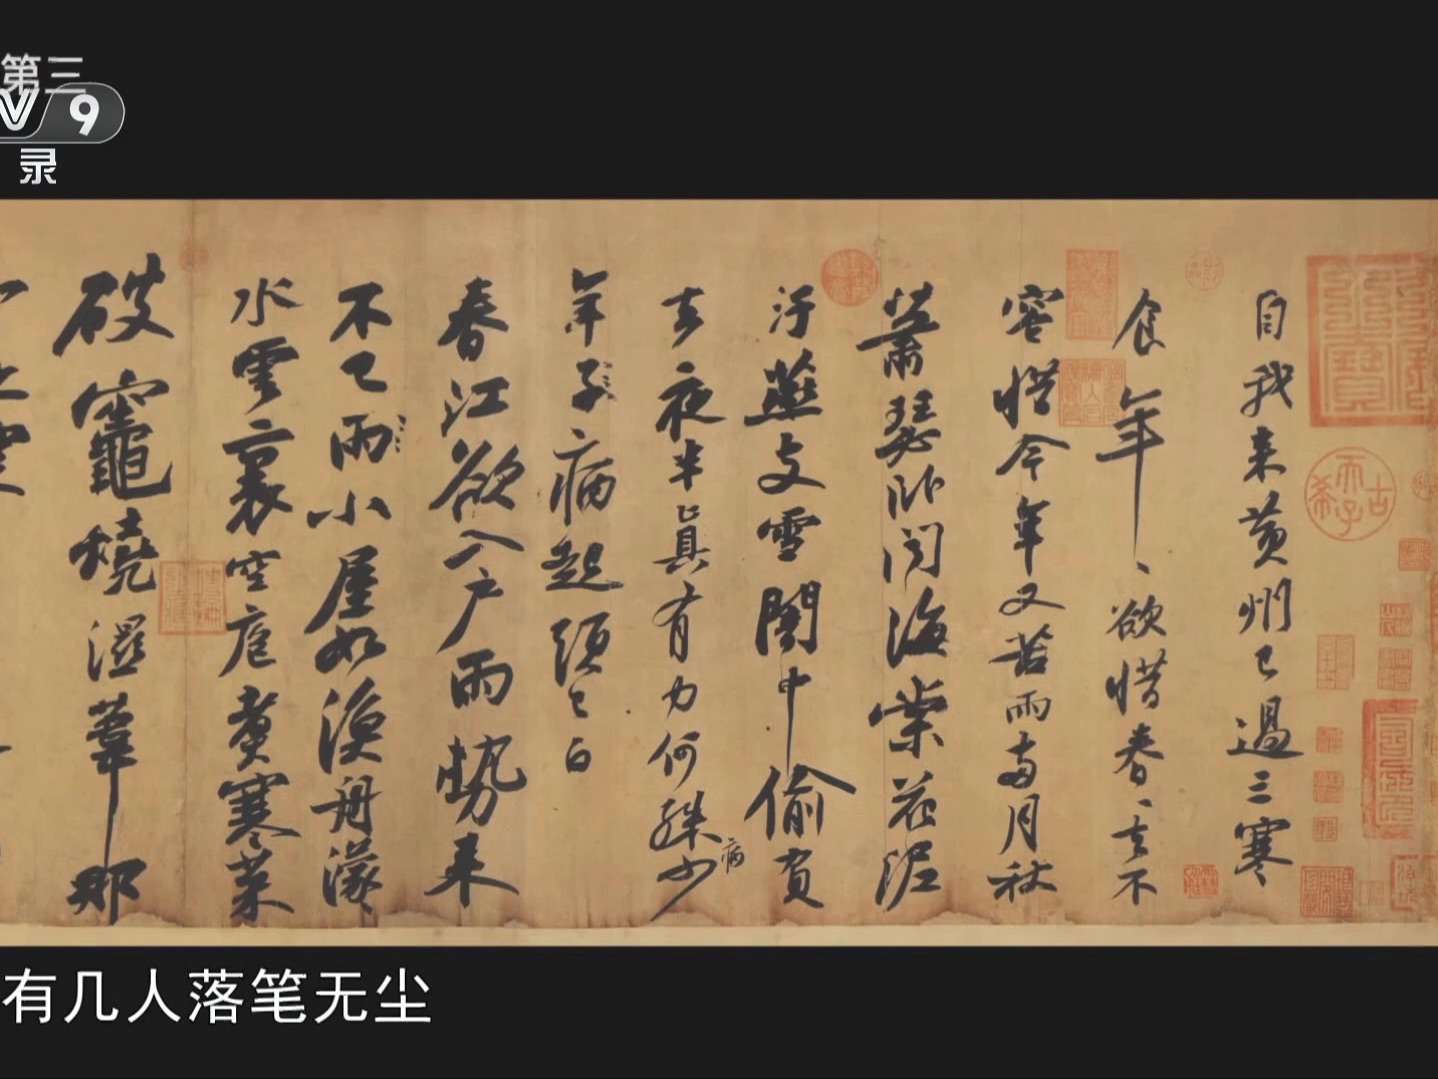 第三
V 9
录
自我来黄州已過三寒
食年、欲惜春、去不
容惜今年又苦雨兩月秋
蕭瑟卧聞海棠花泥
汙燕支雪闇中偷負
去夜半真有力何殊少
病
年子病起頭已白
春江欲入户雨勢来
不已雨小屋如漁舟濛
水雲裏空庖煮寒菜
破竈燒濕葦那
古希天子
有几人落笔无尘